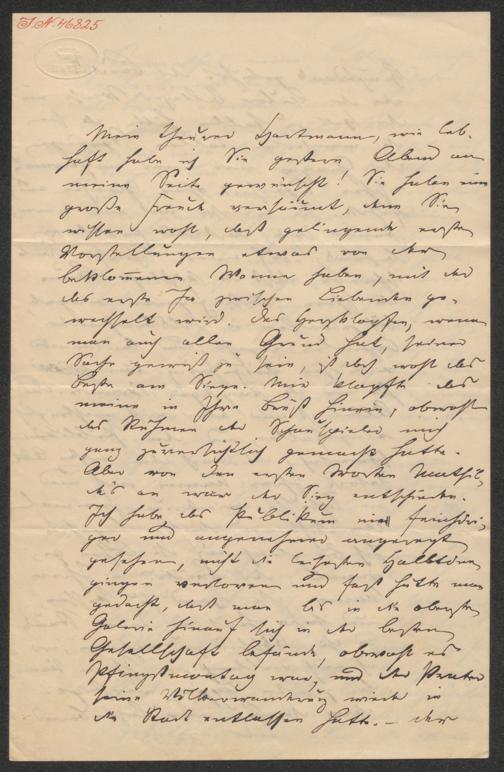 I.N. 46825
Mein theurer Hartmann, wie leb-
haft habe ich Sie gestern Abend an
meine Seite gewünscht! Sie haben eine
große Freude versäumt, denn Sie
wissen wohl, daß gelingende erste
Vorstellungen etwas von der
beklommenen Wonne haben, mit der
das erste Ja zwischen Liebenden ge-
wechselt wird. Das Herzklopfen, wenn
man auch allen Grund hat, seiner
Sache gewiß zu sein, ist doch wohl das
Beste am Siege. Mir klopfte das
meine in Ihre Brust hinein, obwohl
das Rühmen der Schauspieler mich
ganz zuversichtlich gemacht hatte.
Aber von den ersten Worten Mathil-
de's an war der Sieg entschieden.
Ich habe das Publikum nie feinhöri-
ger und angenehmer angeregt
gesehen, nicht die leisesten Halbtöne
gingen verloren und fast hätte man
gedacht, daß man bis in die oberste
Galerie hinauf sich in der besten
Gesellschaft befände, obwohl es
Pfingstmontag war, und der Prater
seine Völkerwanderung wieder in
die Stadt entlassen hatte. – Der